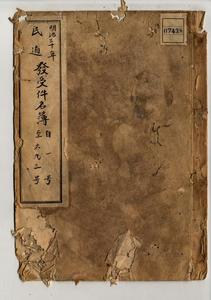 明治三十年
民適發受件名簿
自一号
至六九二号